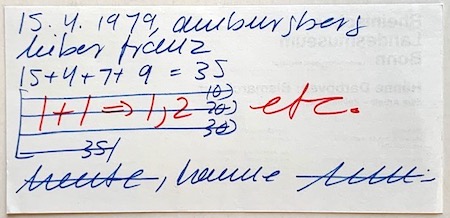 15. 4. 1979, amburgberg
lieber franz
15+4+7+9 = 35
10)
1+1 ⇒ 1,2 20) etc.
30)
351
heute, hanne
Rheini
Landesmuseum
Bonn
Hanne Darboven Bismar